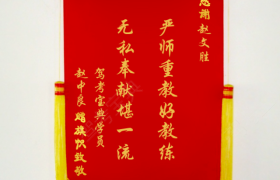 感谢赵文胜
严师重教好教练
无私奉献堪一流
驾考宝典学员
赵中良赠旗帜致敬